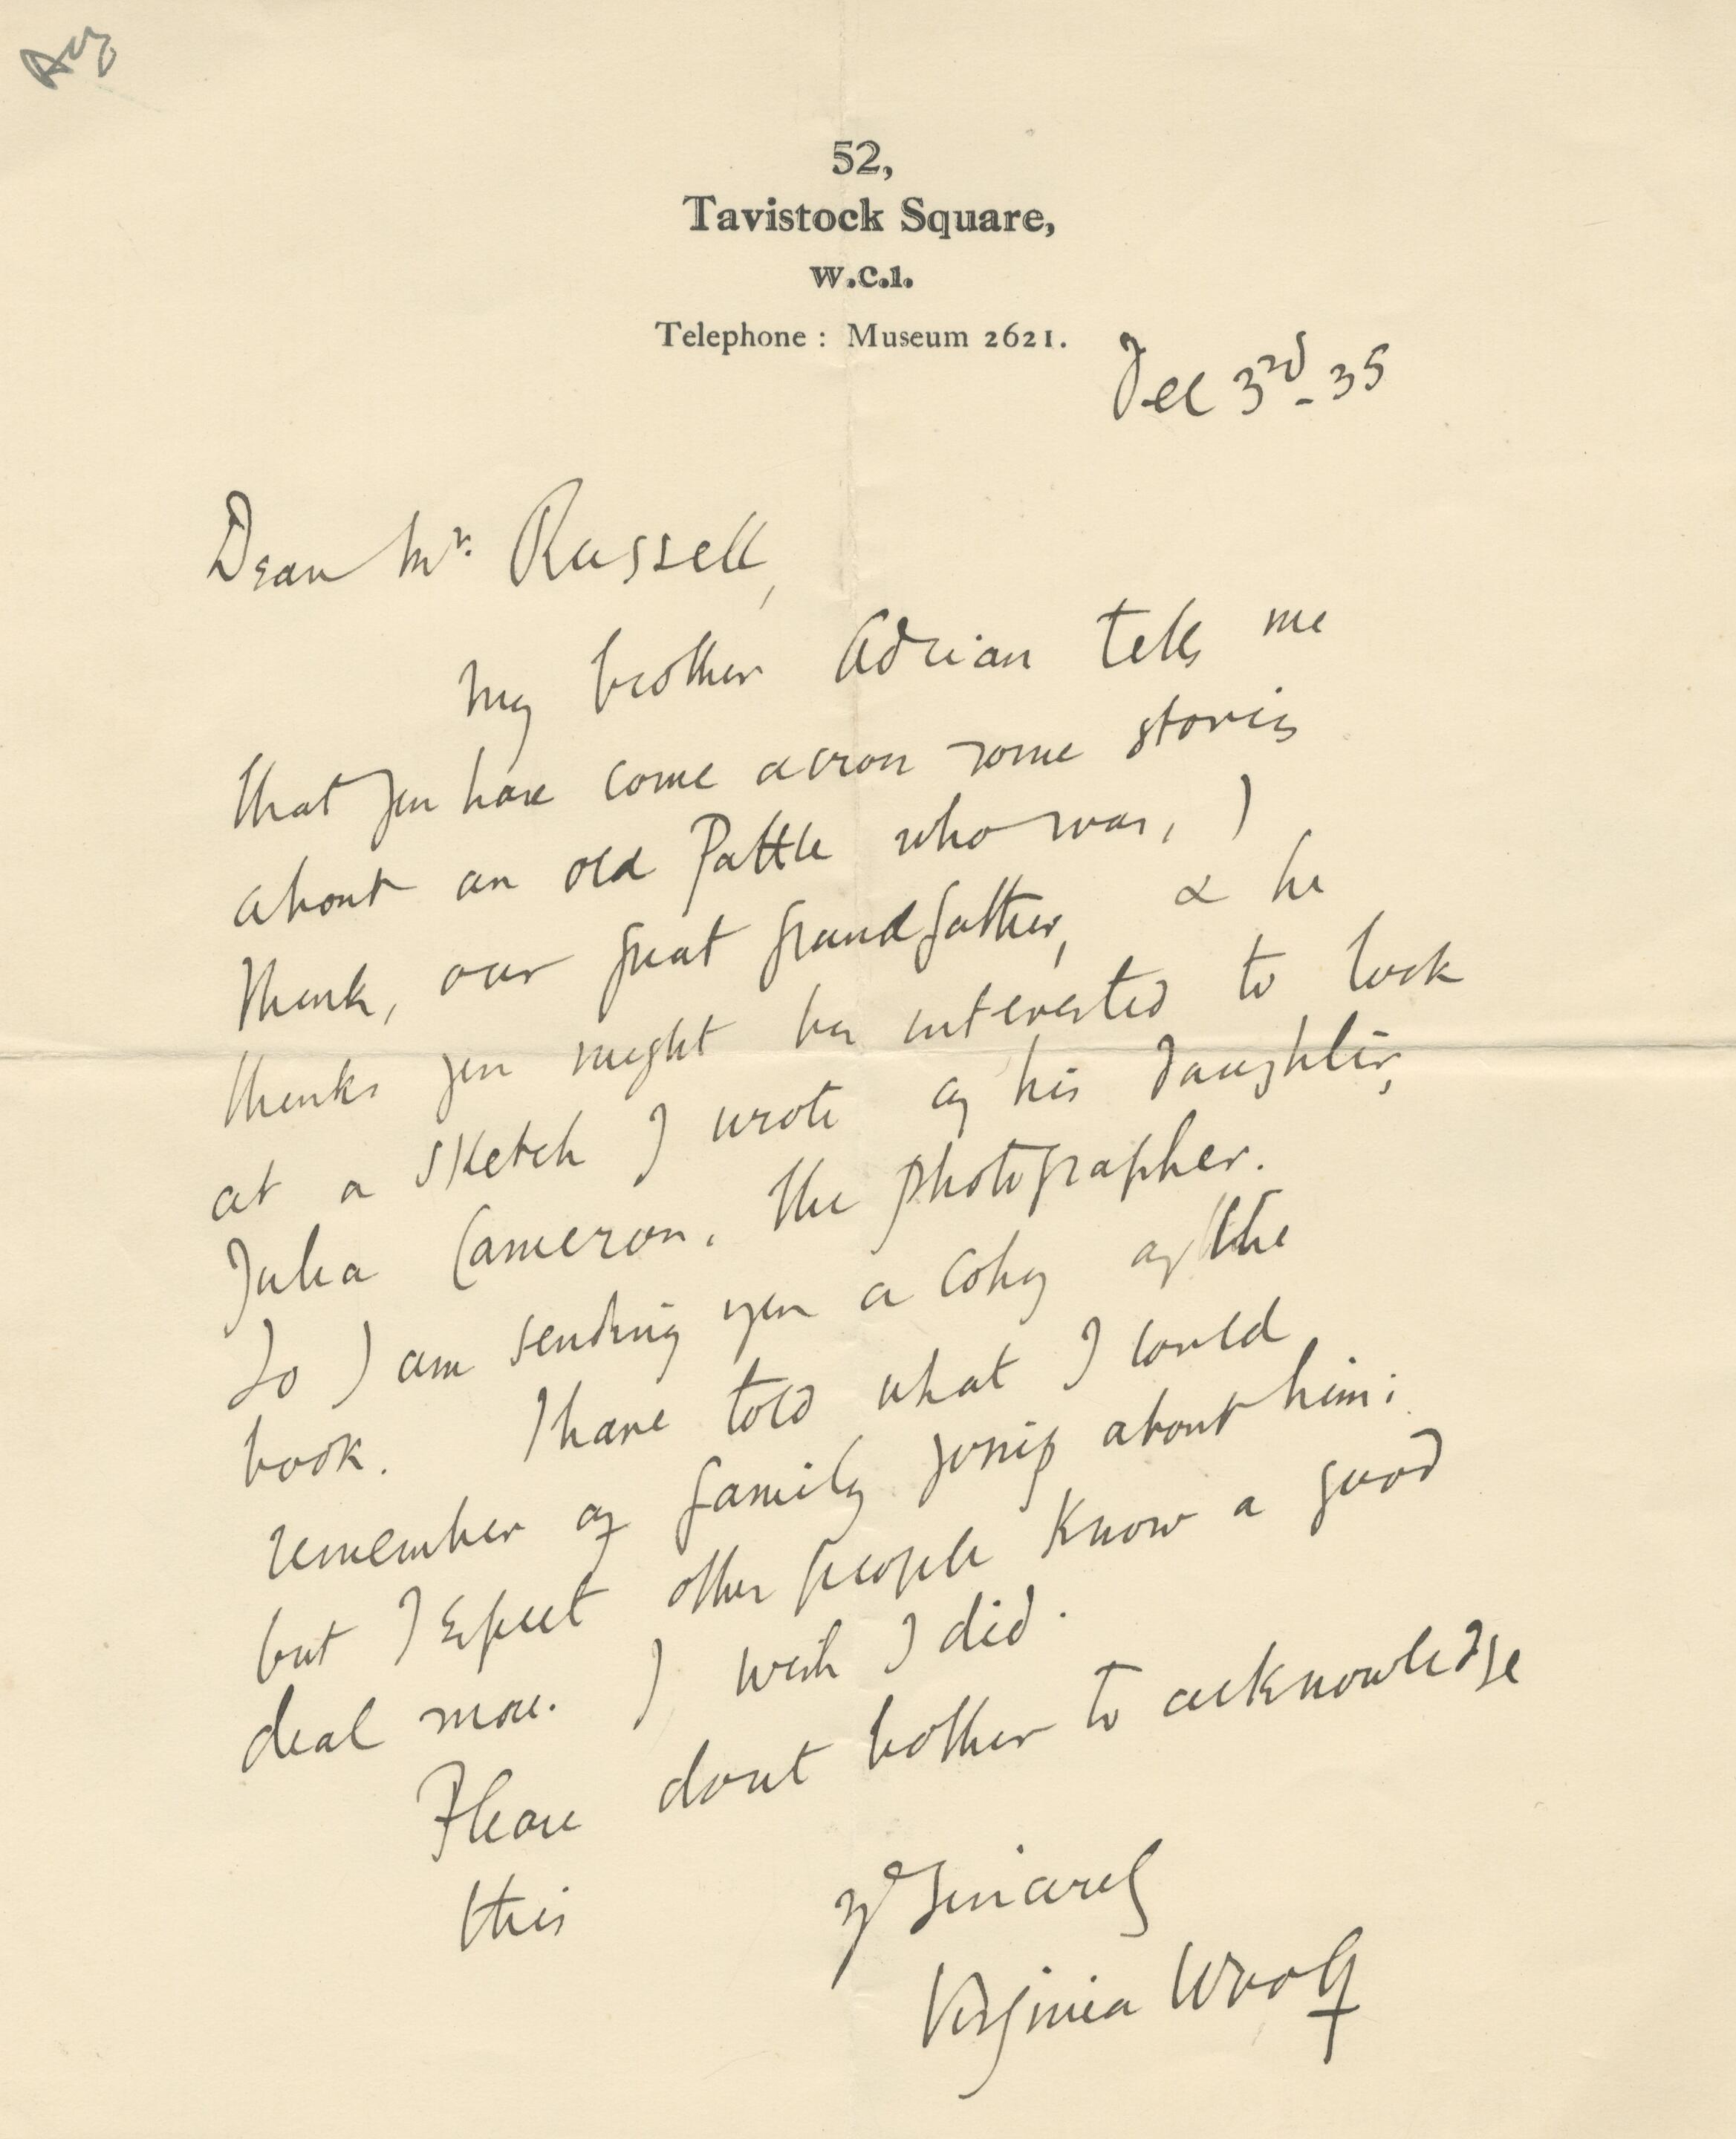 52,
Tavistock Square,
W.C.1.
Telephone : Museum 2621.
Dec 3rd 35
Dear Mr. Russell,
My brother Adrian tells me
that you have come across some stories
about an old Pattle who was, I
think, our great grandfather, & he
thinks you might be interested to look
at a sketch I wrote of his daughter,
Julia Cameron, the photographer.
So I am sending you a copy of the
book. I have told what I could
remember of family gossip about him;
but I expect other people know a good
deal more. I wish I did.
Please dont bother to acknowledge
this
yr sincerely
Virginia Woolf